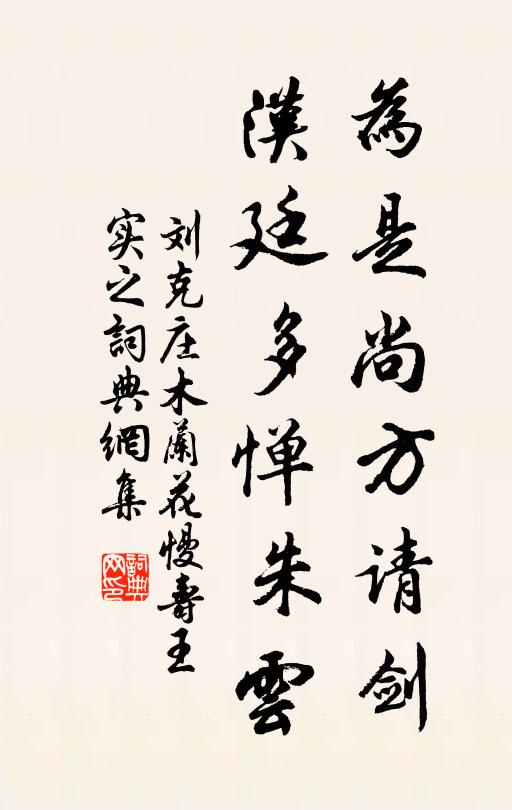 為是尚方请剑
漢廷多惮朱雲
刘克庄木蘭花慢壽王
实之詞典網集
詞典网印